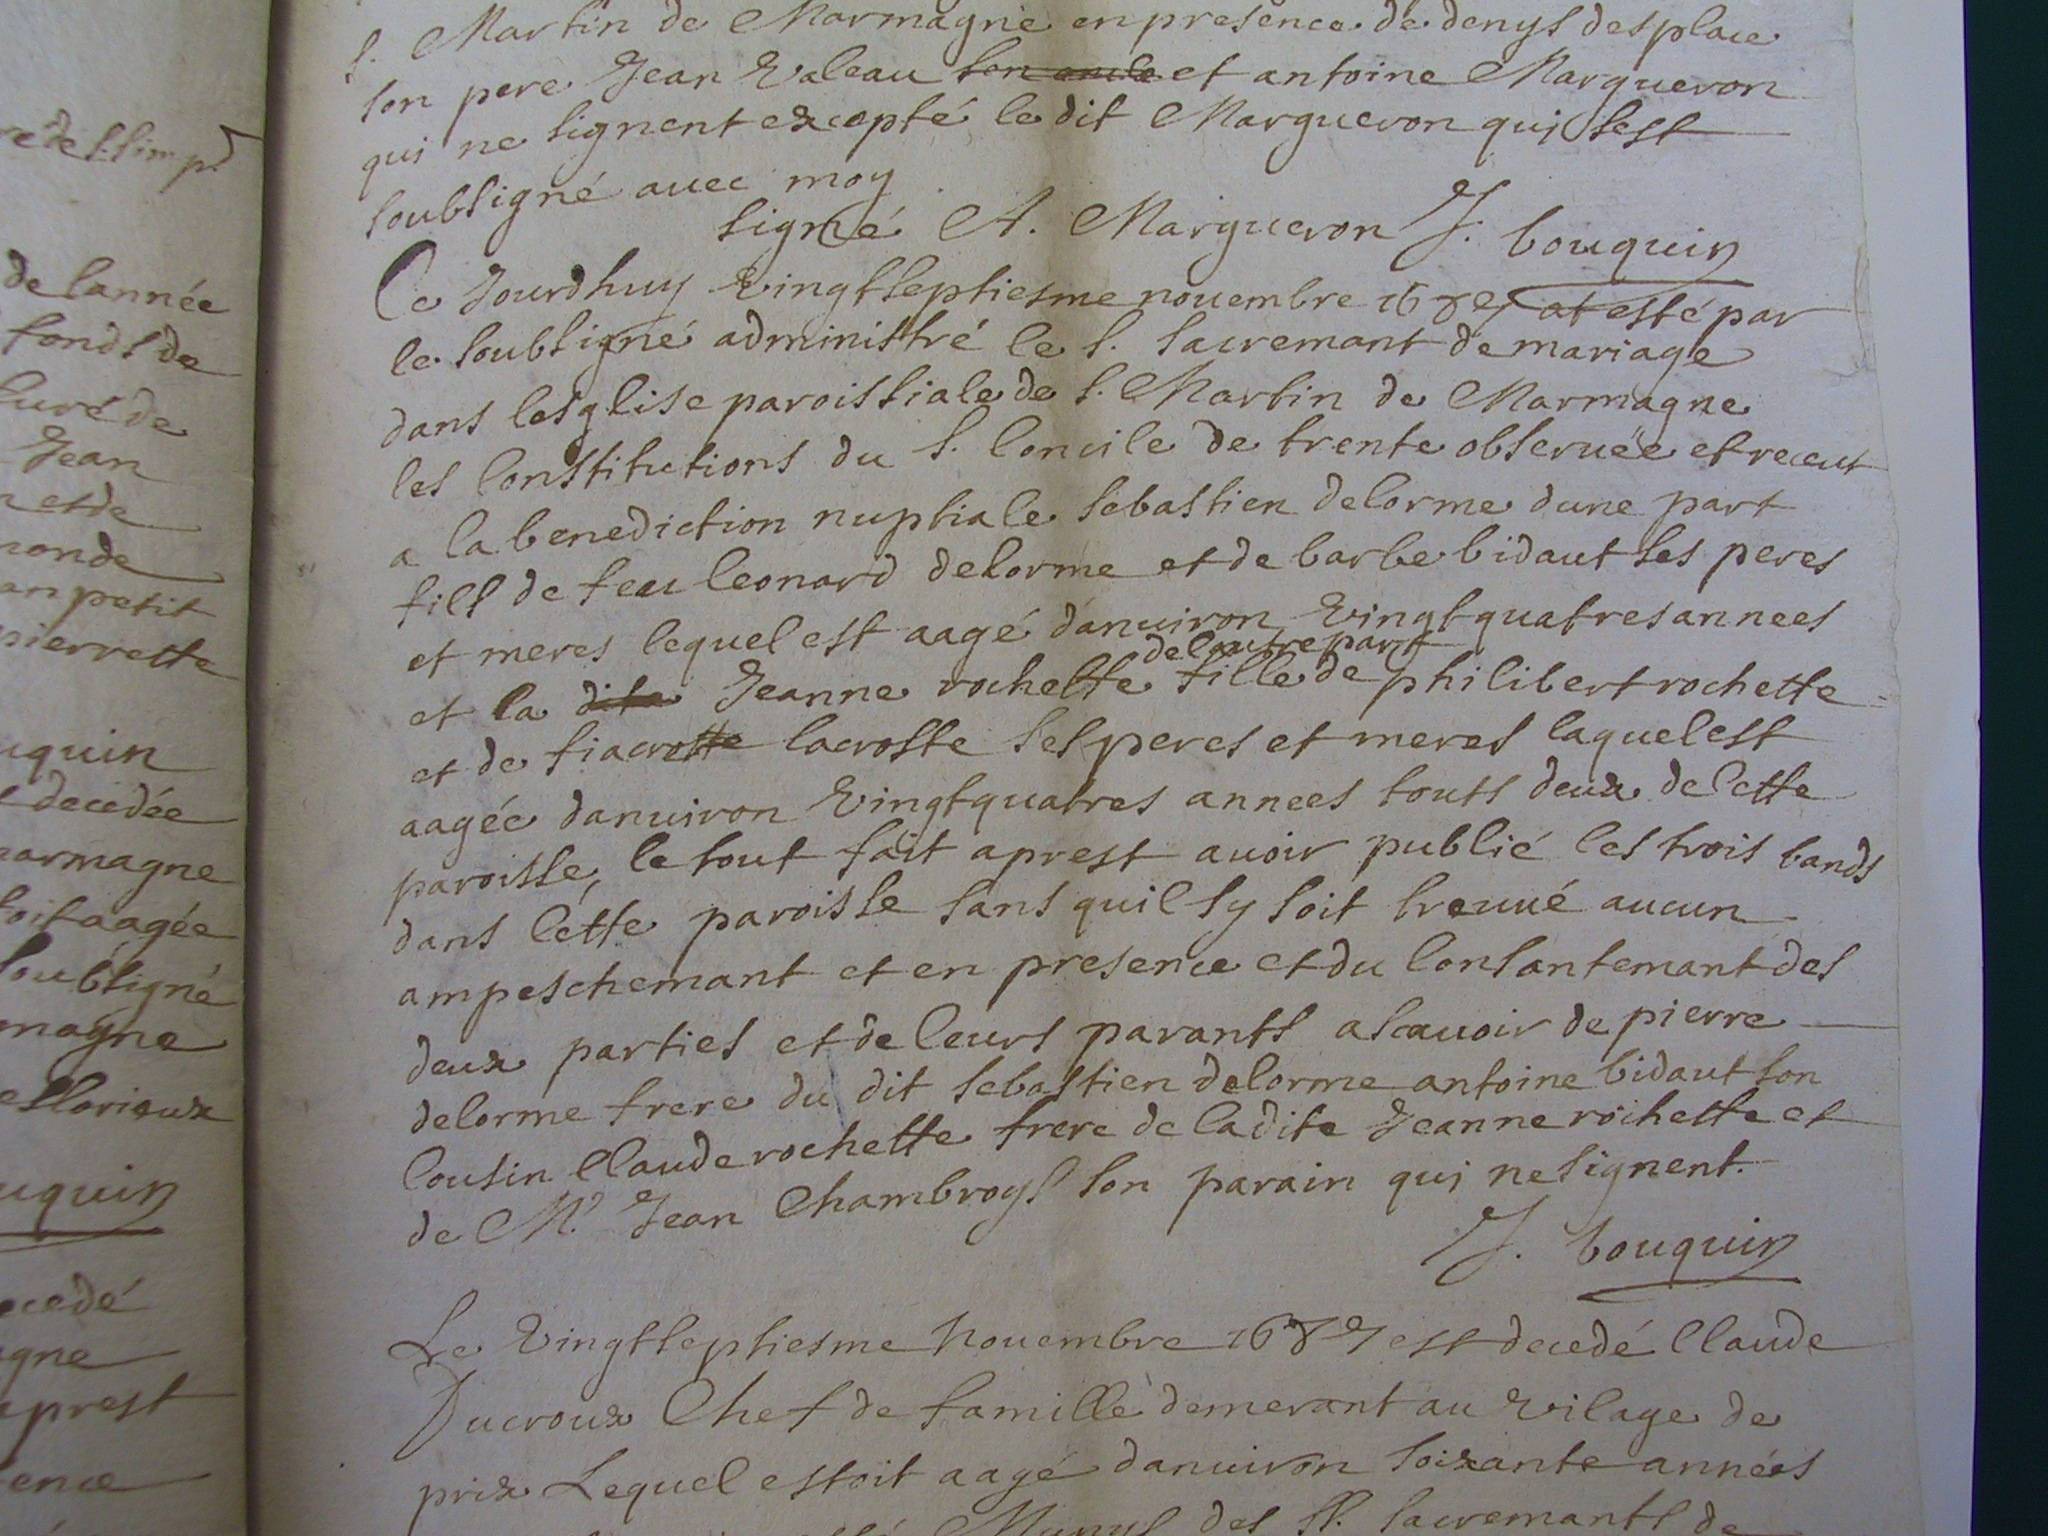 ré de s. simp.
de lannée
fonds de
Curé de
Jean
n et de
monde
an petit
pierrette
uquin
decedée
marmagne
soit aagée
soubsigné
magne
es lorioux
uquin
ecedé
gne
aprest
sence
s. Martin de Marmagne en presence de denys desplace
son pere Jean Valeau son oncle et antoine Margueron
qui ne signent excepté le dit Margueron qui sest
soubsigné avec moy
signé A. Margueron J. bouquin
Ce Jourdhuy vingtseptiesme nouembre 1687 at esté par
le soubsigné administré le s. sacremant de mariage
dans lesglise paroissiale de s. Martin de Marmagne
les Constitutions du s. Concile de trente obseruée et receut
a la benediction nuptiale sebastien delorme dune part
fils de feu leonard delorme et de barbe bidaut ses peres
et meres lequel est aagé danuiron vingtquatres annees
de lautre part
et la dite Jeanne rochette fille de philibert rochette
et de fiacrotte lacroste ses peres et meres laquel est
aagée danuiron vingtquatres annees touts deux de Cette
paroisse, le tout fait aprest auoir publié les trois bands
dans Cette paroisse sans quil sy soit treuué aucun
ampeschemant et en presence et du Consantemant des
deux parties et de leurs parants ascauoir de pierre
delorme frere du dit sebastien delorme antoine bidaut son
Cousin Claude rochette frere de la dite Jeanne rochette et
de Mr. Jean Chambroys son parain qui ne signent.
J. bouquin
Le vingtseptiesme Nouembre 1687 est decedé Claude
Ducroux Chef de famille demerant au vilage de
prix Lequel estoit aagé danuiron soixante années
Munys des ss. sacremants de